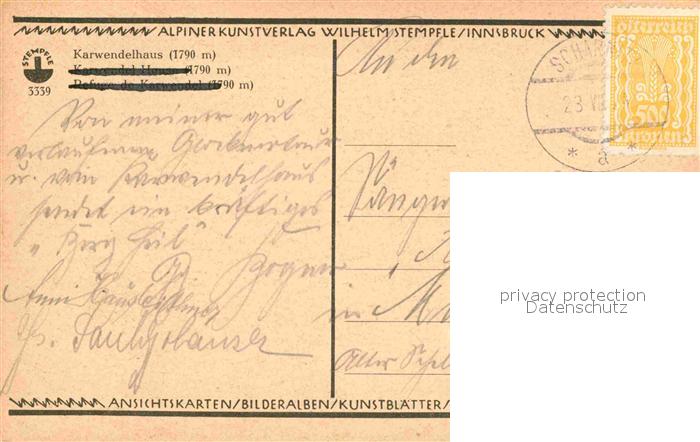 ALPINER KUNSTVERLAG WILHELM STEMPFLE/INNSBRUCK
STEMPFLE
3339
Karwendelhaus (1790 m)
Karwendel House (1790 m)
Refuge de Karwendel (1790 m)
Von meiner gut
verlaufenen Glocknertour
u. vom Karwendelhaus
sendet ein kräftiges
„Berg Heil“
An den
Sänger
in
Alter
österreich
500
kronen
SCHAR
23 VII
* a *
privacy protection
Datenschutz
ANSICHTSKARTEN/BILDERALBEN/KUNSTBLÄTTER/